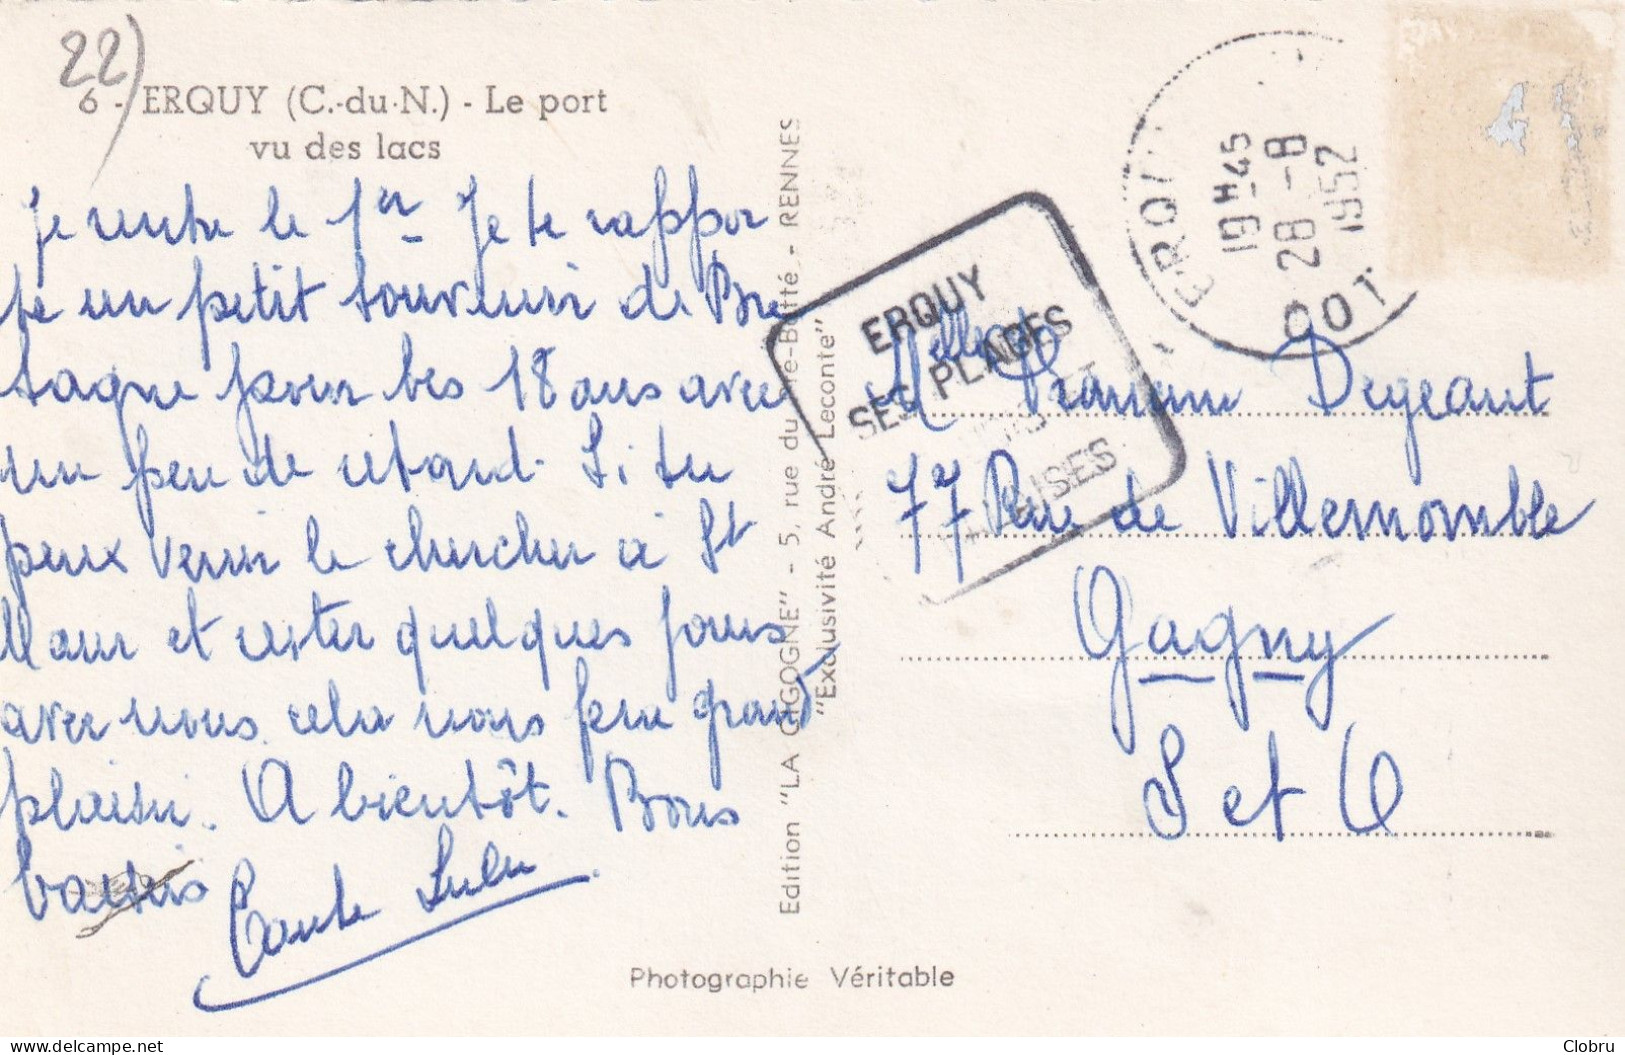 22)
6 - ERQUY (C.-du-N.) - Le port
vu des lacs
Je rentre le 1er Je te rappor
te un petit souvenir de Bre
tagne pour tes 18 ans avec
un peu de retard. Si tu
peux venir le chercher à St
Maur et rester quelques jours
avec nous cela nous fera grand
plaisir. A bientôt. Bons
baisers
Tante Lulu
Edition "LA CIGOGNE" - 5, rue du - RENNES
"Exclusivité André Leconte"
ERQUY
SES PLAGES
ERQUY
19H45
28 -8
1952
COT
Melle Degeant
77 Rue de Villemomble
Gagny
S et O
Photographie Véritable
Clobru